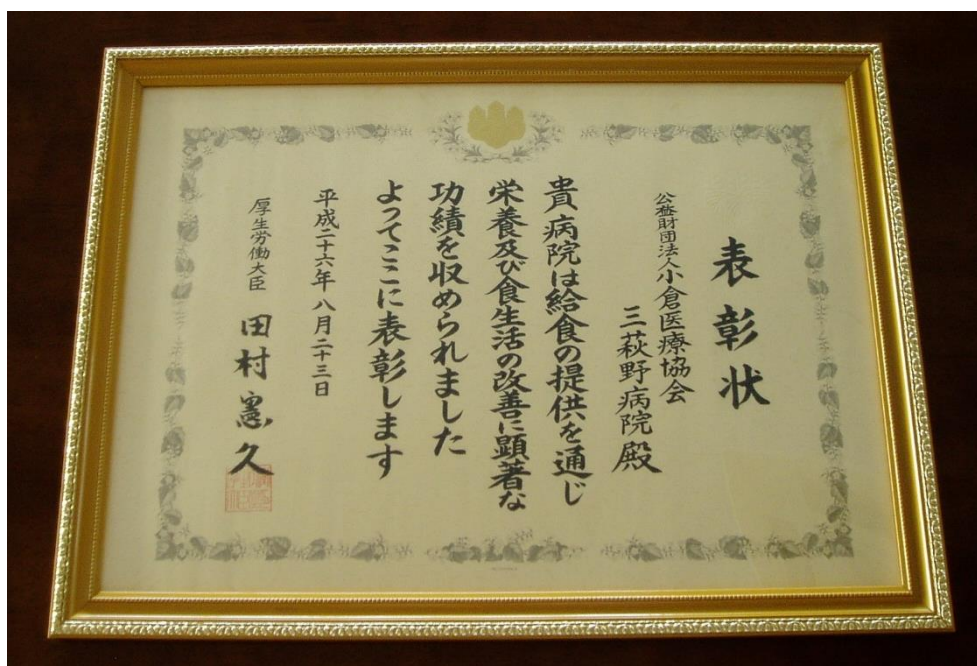 表彰状
公益財団法人小倉医療協会
三萩野病院殿
貴病院は給食の提供を通じ
栄養及び食生活の改善に顕著な
功績を収められました
よってここに表彰します
平成二十六年 八月二十三日
厚生労働大臣 田村憲久